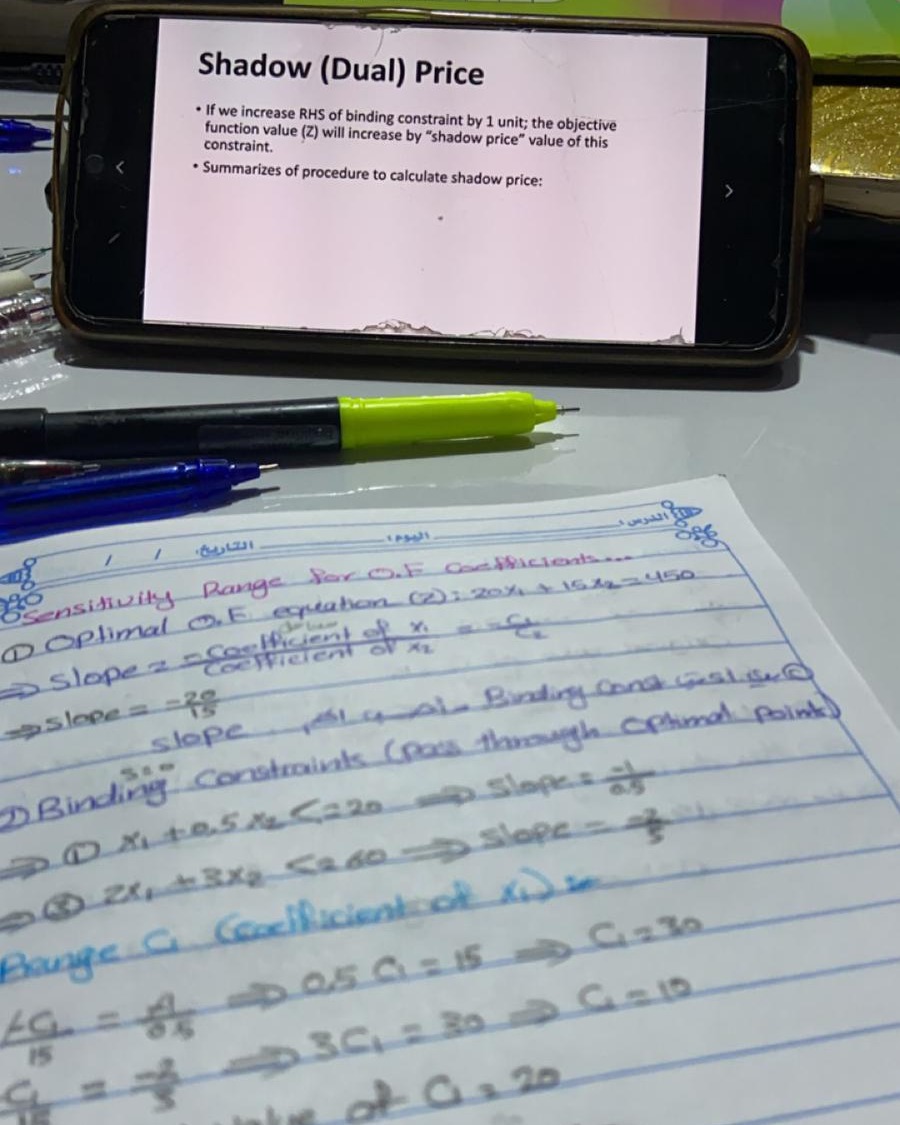 Shadow (Dual) Price
• If we increase RHS of binding constraint by 1 unit; the objective
function value (Z) will increase by "shadow price" value of this
constraint.
• Summarizes of procedure to calculate shadow price:
الدرس:
اليوم:
التاريخ: / /
Sensitivity Range for O.F Coefficients...
① Optimal O.F equation (Z): 20x₁ + 15x₂ = 450
⇒ slope = -Coefficient of x₁ / Coefficient of x₂ = -C₁/C₂
⇒ slope = -20/15
slope Binding Const
② Binding Constraints (pass through optimal points)
⇒ ① x₁ + 0.5x₂ <= 20 ⇒ slope = -1/0.5
⇒ ② 2x₁ + 3x₂ <= 60 ⇒ slope = -2/3
Range C₁ (Coefficient of x₁)
-C₁/15 = -1/0.5 ⇒ 0.5 C₁ = 15 ⇒ C₁ = 30
C₁/15 = -2/3 ⇒ 3C₁ = 30 ⇒ C₁ = 10
value of C₁ = 20